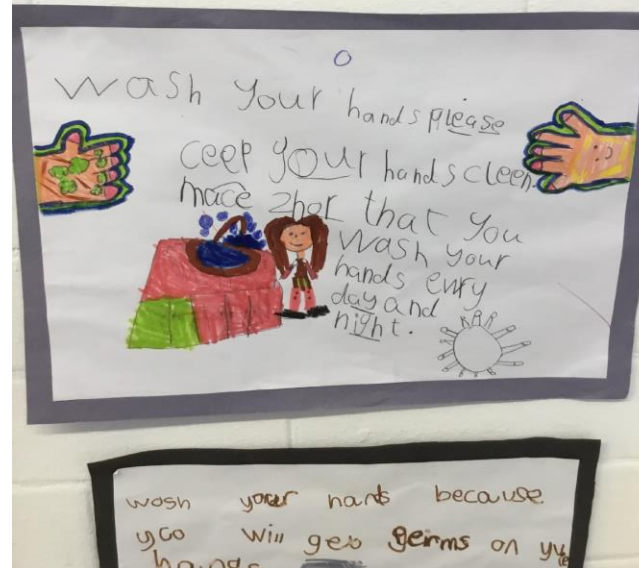 wash your hands please
ceep your hands cleen
mace zhor that you
wash your
hands evry
day and
night.
wosh your hands because
yoo will get germs on
hands